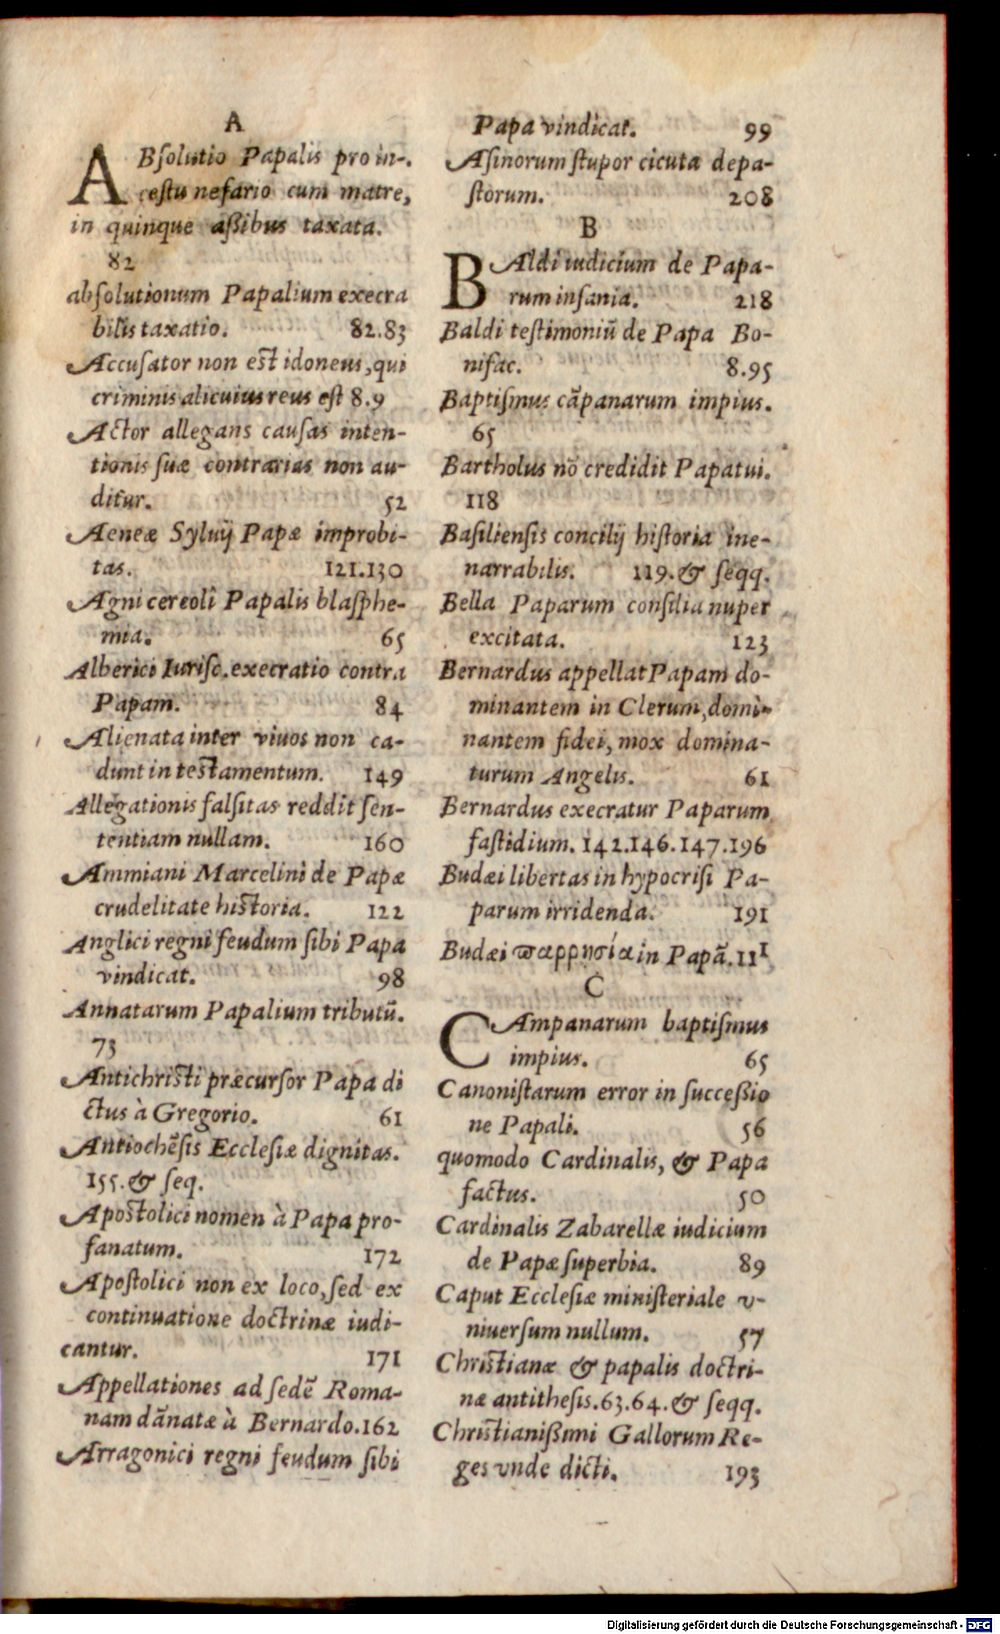 A
ABſolutio Papalis pro in-
ceſtu nefario cum matre,
in quinque aßibus taxata.
82
abſolutionum Papalium execra
bilis taxatio. 82.83
Accuſator non eſt idoneus, qui
criminis alicuius reus eſt 8.9
Actor allegans cauſas inten-
tionis ſuæ contrarias non au-
ditur. 52
Aeneæ Sylvij Papæ improbi-
tas. 121.130
Agni cereoli Papalis blaſphe-
mia. 65
Alberici Iuriſc. execratio contra
Papam. 84
Alienata inter viuos non ca-
dunt in teſtamentum. 149
Allegationis falſitas reddit ſen-
tentiam nullam. 160
Ammiani Marcelini de Papæ
crudelitate hiſtoria. 122
Anglici regni feudum ſibi Papa
vindicat. 98
Annatarum Papalium tributū.
73
Antichriſti præcurſor Papa di
ctus à Gregorio. 61
Antiochēſis Eccleſiæ dignitas.
155. & ſeq.
Apoſtolici nomen à Papa pro-
fanatum. 172
Apoſtolici non ex loco, ſed ex
continuatione doctrinæ iudi-
cantur. 171
Appellationes ad ſedē Roma-
nam dānatæ à Bernardo. 162
Arragonici regni feudum ſibi
Papa vindicat. 99
Aſinorum ſtupor cicuta depa-
ſtorum. 208
B
BAldi iudicium de Papa-
rum inſania. 218
Baldi teſtimoniū de Papa Bo-
nifac. 8.95
Baptiſmus cāpanarum impius.
65
Bartholus nō credidit Papatui.
118
Baſilienſis concilij hiſtoria ine-
narrabilis. 119. & ſeqq.
Bella Paparum conſilia nuper
excitata. 123
Bernardus appellat Papam do-
minantem in Clerum, domi-
nantem fidei, mox domina-
turum Angelis. 61
Bernardus execratur Paparum
faſtidium. 142.146.147.196
Budæi libertas in hypocriſi Pa-
parum irridenda. 191
Budæi ϖαρρησία in Papā. 111
C
CAmpanarum baptiſmus
impius. 65
Canoniſtarum error in ſucceßio
ne Papali. 56
quomodo Cardinalis, & Papa
factus. 50
Cardinalis Zabarellæ iudicium
de Papæ ſuperbia. 89
Caput Eccleſiæ miniſteriale v-
niuerſum nullum. 57
Chriſtianæ & papalis doctri-
næ antitheſis. 63.64. & ſeqq.
Chriſtianißimi Gallorum Re-
ges vnde dicti. 193
Digitalisierung gefördert durch die Deutsche Forschungsgemeinschaft - DFG